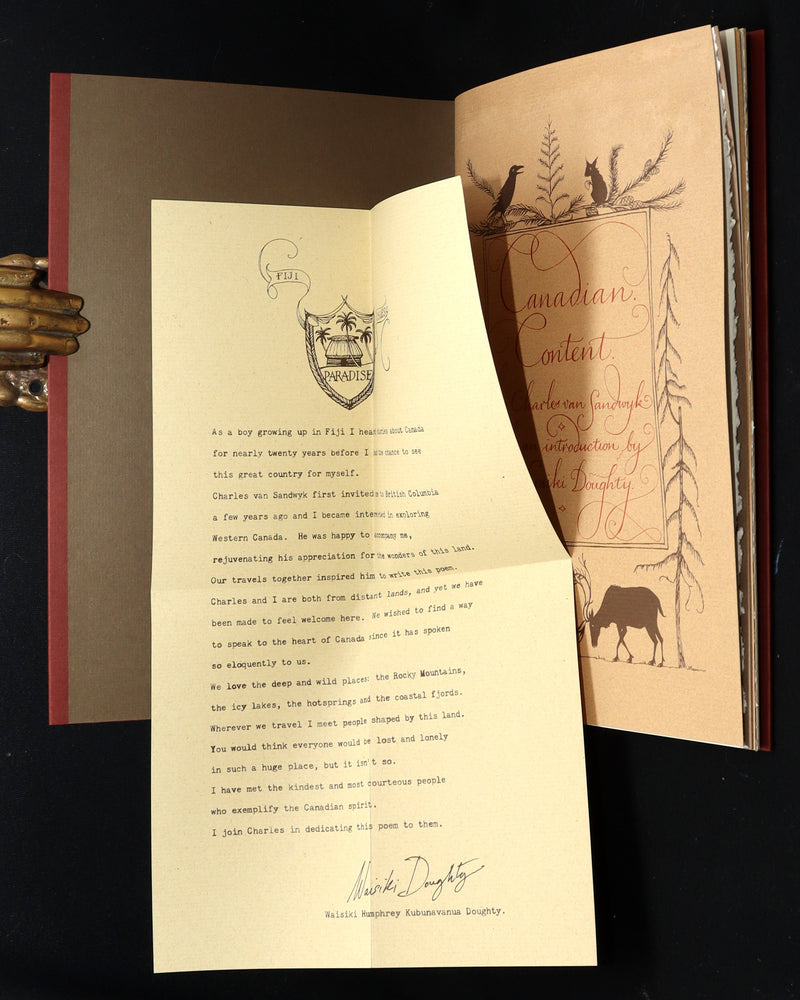 FIJI
PARADISE
As a boy growing up in Fiji I hear stories about Canada
for nearly twenty years before I had the chance to see
this great country for myself.
Charles van Sandwyk first invited us to British Columbia
a few years ago and I became interested in exploring
Western Canada. He was happy to accompany me,
rejuvenating his appreciation for the wonders of this land.
Our travels together inspired him to write this poem.
Charles and I are both from distant lands, and yet we have
been made to feel welcome here. We wished to find a way
to speak to the heart of Canada since it has spoken
so eloquently to us.
We love the deep and wild places: the Rocky Mountains,
the icy lakes, the hotsprings and the coastal fjords.
Wherever we travel I meet people shaped by this land.
You would think everyone would be lost and lonely
in such a huge place, but it isn't so.
I have met the kindest and most courteous people
who exemplify the Canadian spirit.
I join Charles in dedicating this poem to them.
Waisiki Doughty
Waisiki Humphrey Kubunavanua Doughty.
Canadian.
Content.
Charles van Sandwyk
an introduction by
Doughty.